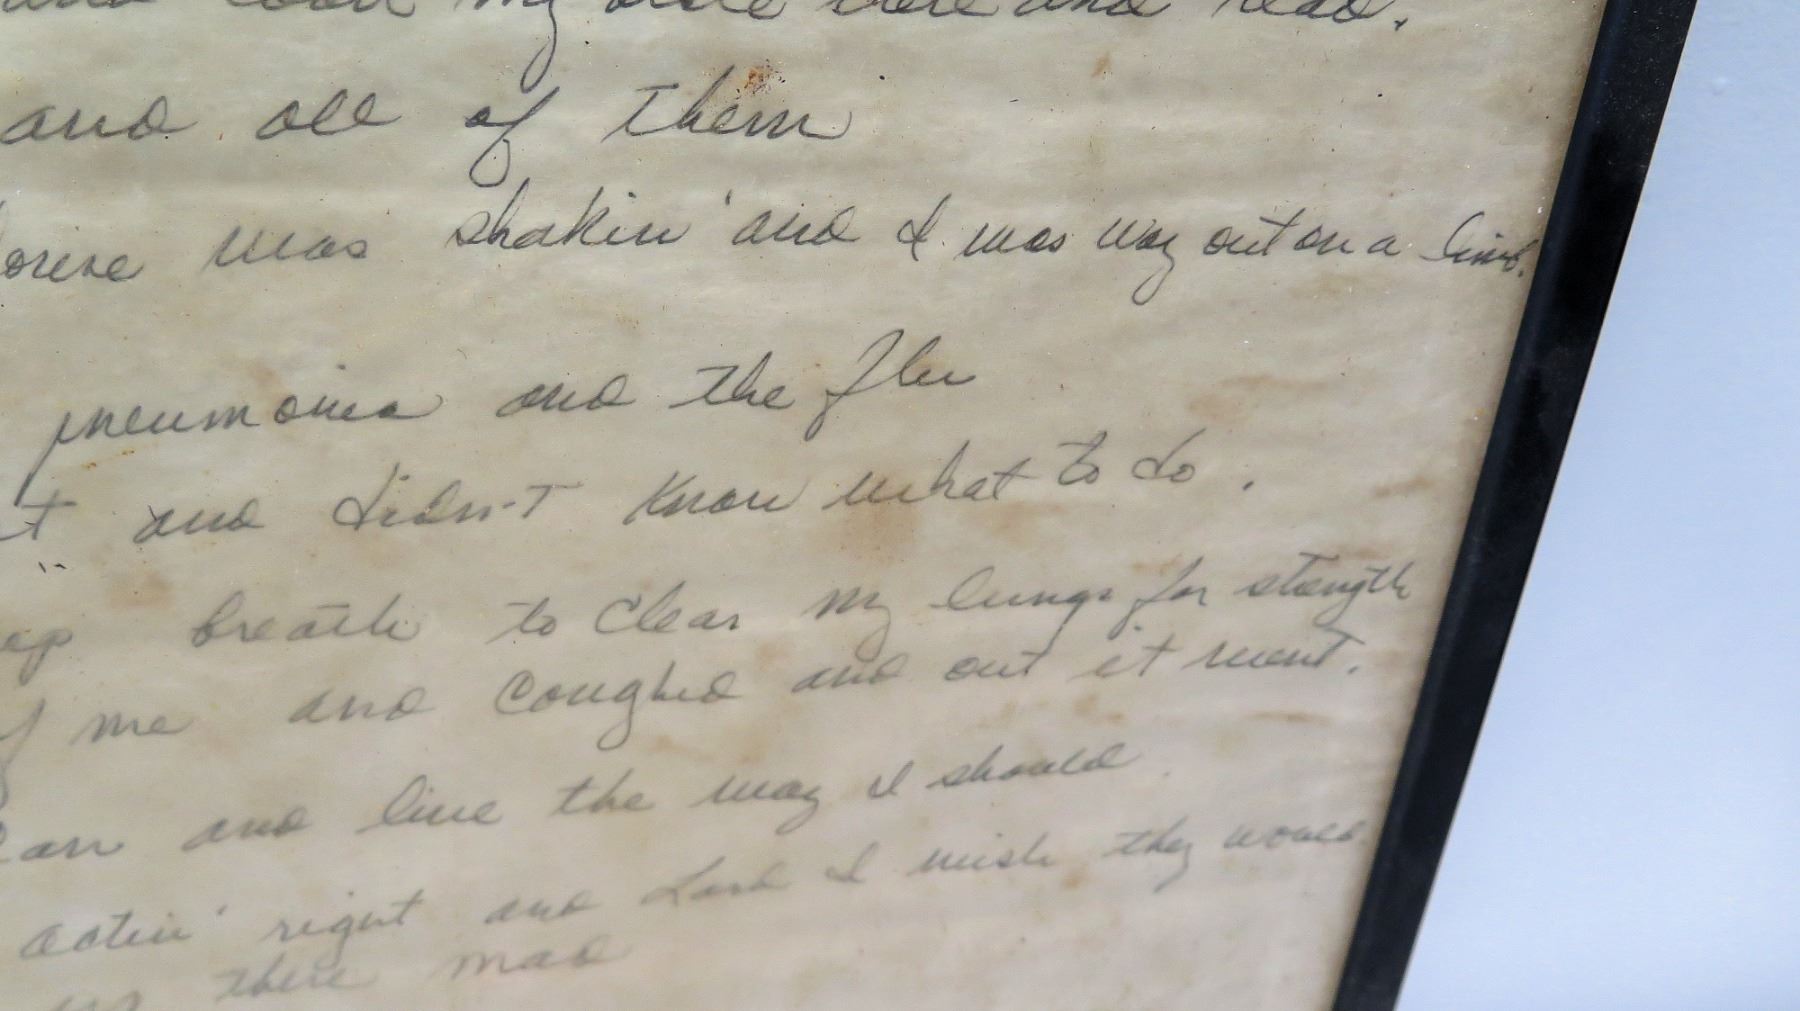 and took my bible here and read.
and all of them
was shakin' and I was way out on a limb.
pneumonia and the flu
and didn't know what to do.
breath to clear my lungs for strength
me and coughed and out it went.
and live the way I should
actin' right and Lord I wish they would
there mad